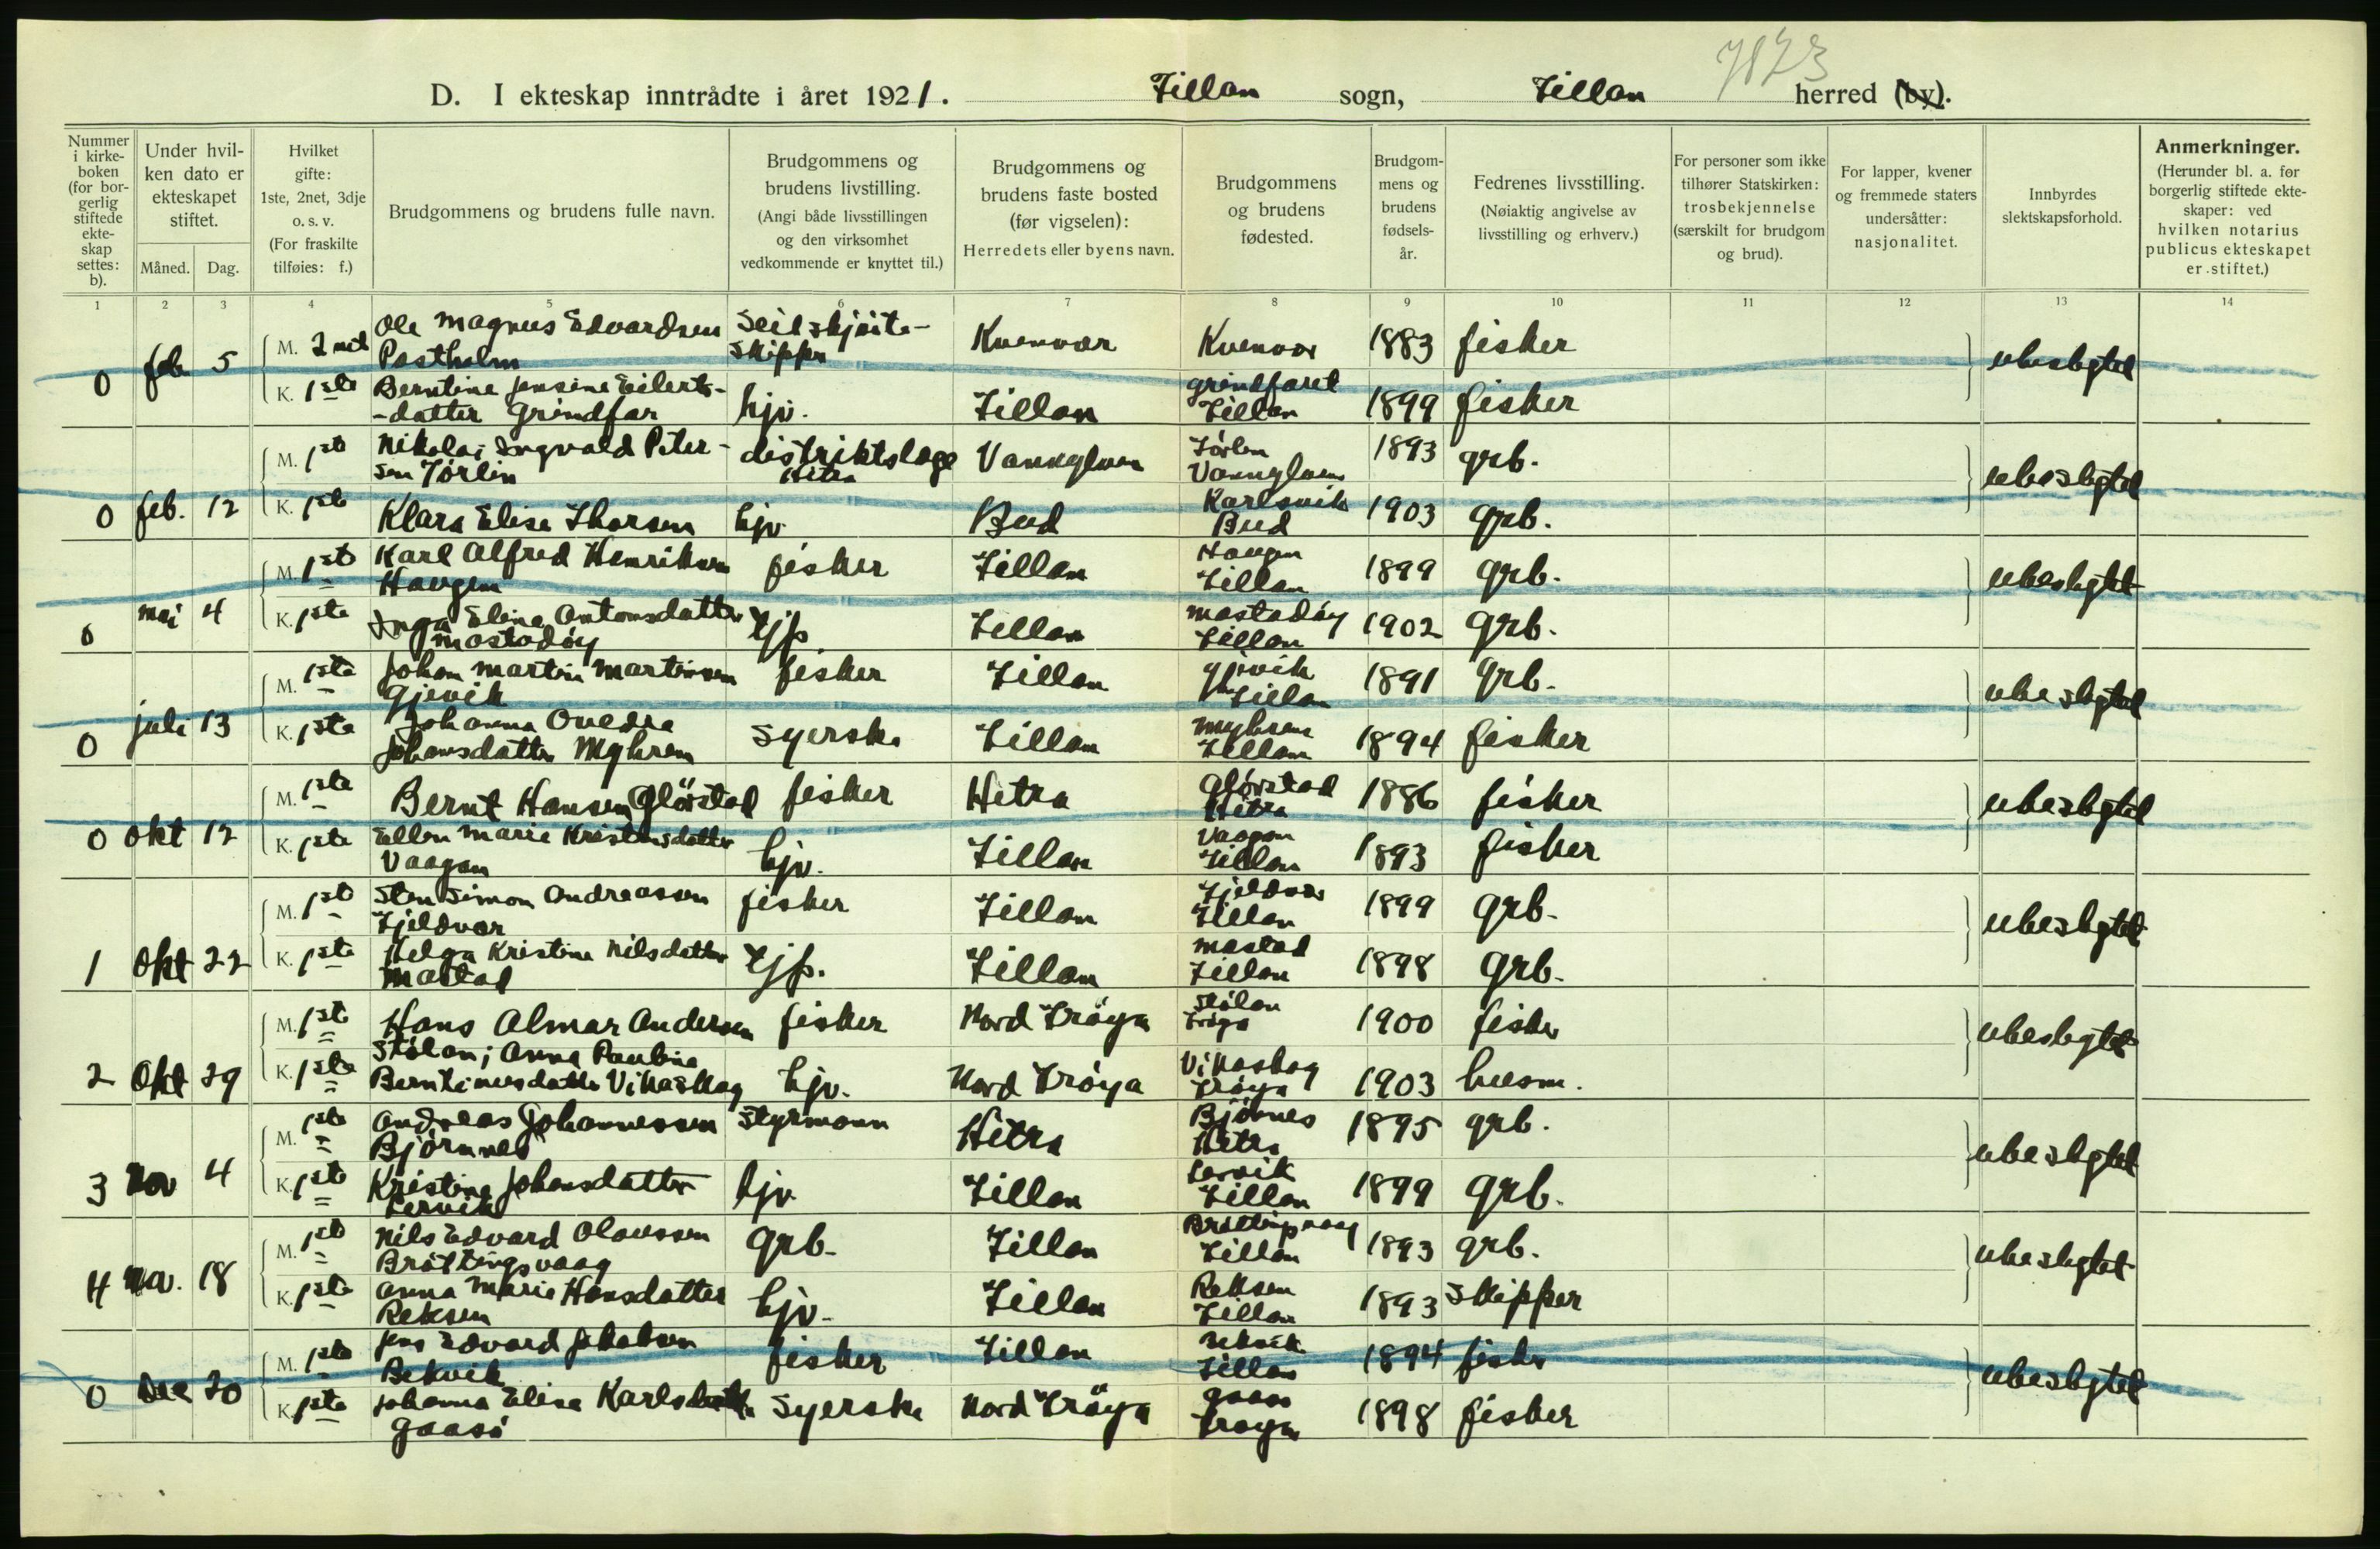 7873
D. I ekteskap inntrådte i året 1921. Fillan sogn, Fillan herred (by).
Nummer i kirke-boken (for bor-gerlig stiftede ekte-skap settes: b).
Under hvil-ken dato er ekteskapet stiftet.
Måned. Dag.
Hvilket gifte: 1ste, 2net, 3dje o. s. v. (For fraskilte tilføies: f.)
Brudgommens og brudens fulle navn.
Brudgommens og brudens livstilling. (Angi både livsstillingen og den virksomhet vedkommende er knyttet til.)
Brudgommens og brudens faste bosted (før vigselen): Herredets eller byens navn.
Brudgommens og brudens fødested.
Brudgom-mens og brudens fødsels-år.
Fedrenes livsstilling. (Nøiaktig angivelse av livsstilling og erhverv.)
For personer som ikke tilhører Statskirken: trosbekjennelse (særskilt for brudgom og brud).
For lapper, kvener og fremmede staters undersåtter: nasjonalitet.
Innbyrdes slektskapsforhold.
Anmerkninger. (Herunder bl. a. for borgerlig stiftede ekte-skaper: ved hvilken notarius publicus ekteskapet er stiftet.)
1 2 3 4 5 6 7 8 9 10 11 12 13 14
0 feb 5 M. 2net Ole Magnus Edvardsen Seilskjöite-
Postholm skipper Kvenvær Kvenvær 1883 fisker ubeslegtet
K. 1ste Berntine Jensine Eilerts-
-datter Grindfar hjv. Fillan Grindfaret Fillan 1899 fisker
0 feb. 12 M. 1ste Nikolai Ingvald Peter-
sen Förlin distriktslæge Hitra 1893 grb. ubeslegtet
K. 1ste Klara Elise Thorsen hjv. Bud Karlsvik Bud 1903 grb.
0 mai 4 M. 1ste Karl Alfred Henriksen
Haugen fisker Fillan Haugen Fillan 1899 grb. ubeslegtet
K. 1ste Inga Eline Antonsdatter
Mastadöy tjp. Fillan Mastadöy Fillan 1902 grb.
0 juli 13 M. 1ste Johan Martin Martinsen
Gjevik fisker Fillan Gjevik Fillan 1891 grb. ubeslegtet
K. 1ste Johanna Ovedia
Johansdatter Myhren Syerske Fillan Myhren Fillan 1894 fisker
0 okt 12 M. 1ste Bernt Hansen Glörstad fisker Hitra Glörstad Hitra 1886 fisker ubeslegtet
K. 1ste Ellen Marie Kristensdatter
Vaagan hjv. Fillan Vaagan Fillan 1893 fisker
1 Okt 22 M. 1ste Sten Simon Andreassen
Fjeldvær fisker Fillan Fjeldvær Fillan 1899 grb. ubeslegtet
K. 1ste Helga Kristine Nilsdatter
Mastad tjp. Fillan Mastad Fillan 1898 grb.
2 Okt 29 M. 1ste Hans Almar Andersen fisker Nord Fröya Stölan Fröya 1900 fisker ubeslegtet
Stölan; Anna Pauline
K. 1ste Berntinusdatter Vikaskag hjv. Nord Fröya Vikaskag Fröya 1903 husm.
3 Nov 4 M. 1ste Andreas Johannessen Styrmann
Björnnes Hitra Björnnes Hitra 1895 grb. ubeslegtet
K. 1ste Kristine Johansdatter
Lervik hjv. Fillan Lervik Fillan 1899 grb.
4 Nov. 18 M. 1ste Nils Edvard Olaussen
Bråttingsvaag grb. Fillan Bråttingsvaag Fillan 1893 grb. ubeslegtet
K. 1ste Anna Marie Hansdatter
Reksen hjv. Fillan Reksen Fillan 1893 Skipper
0 Des 20 M. 1ste Jens Edvard Jakobsen
Bekvik fisker Fillan Bekvik Fillan 1894 fisker ubeslegtet
K. 1ste Johanna Elise Karlsdatter
Gaasö Syerske Nord Fröya Fröya 1898 fisker